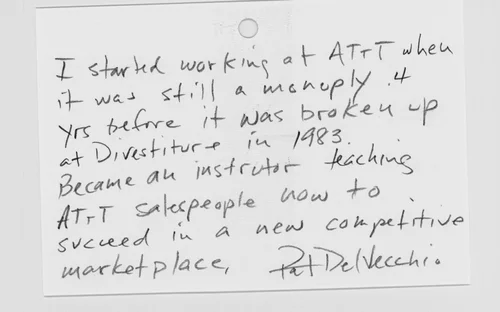 I started working at AT+T when
it was still a manoply .4
yrs before it was broken up
at Divestiture in 1983.
Became an instrutor teaching
AT+T salespeople how to
succeed in a new competitive
marketplace, Pat DelVecchio.